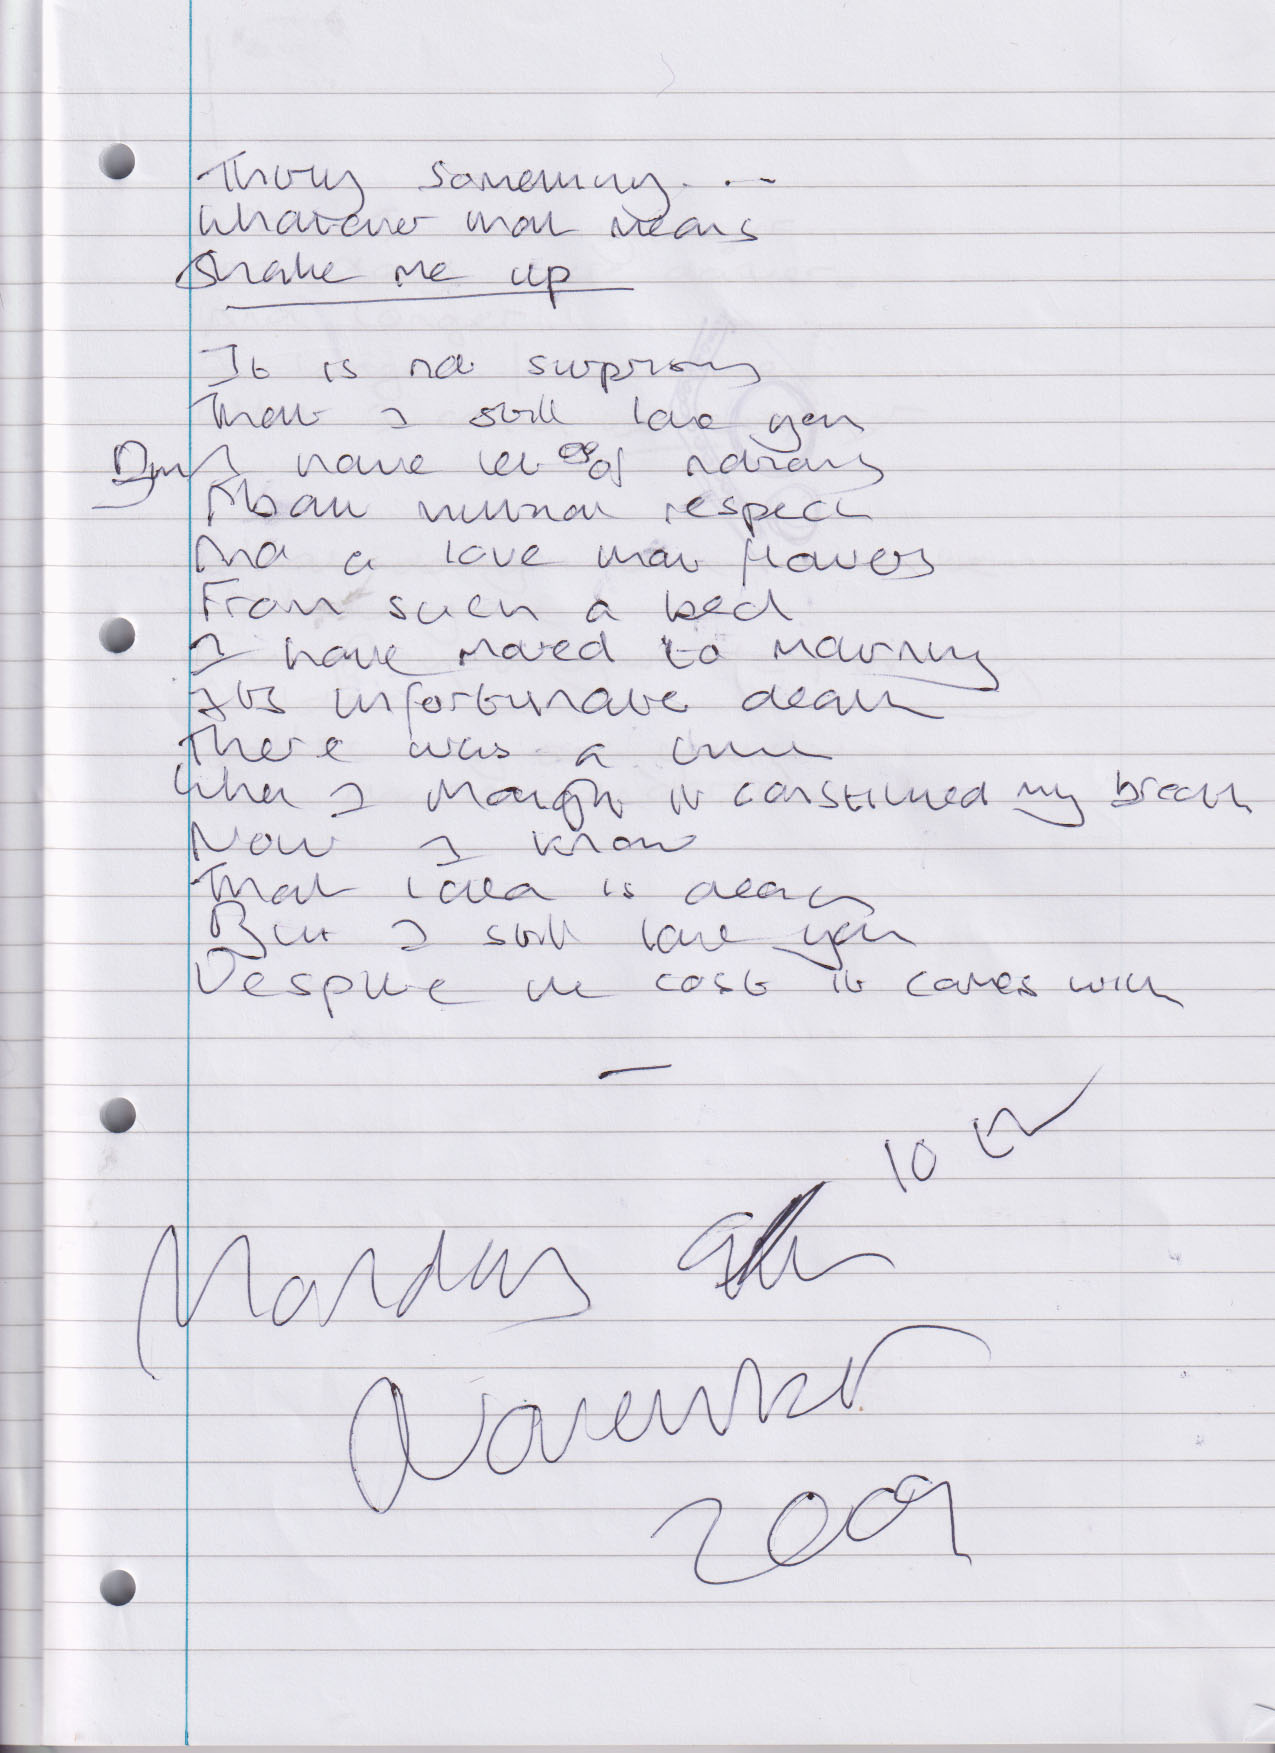 Thirty something...
Whatever that means
Shake me up
It is no surprise
That I still love you
But I have let go of notions
About mutual respect
And a love that flowers
From such a bed
I have moved to mourning
Its unfortunate death
There was a time
When I thought it constituted my breath
Now I know
That idea is dead
But I still love you
Despite the cost it comes with
10th
November
2009